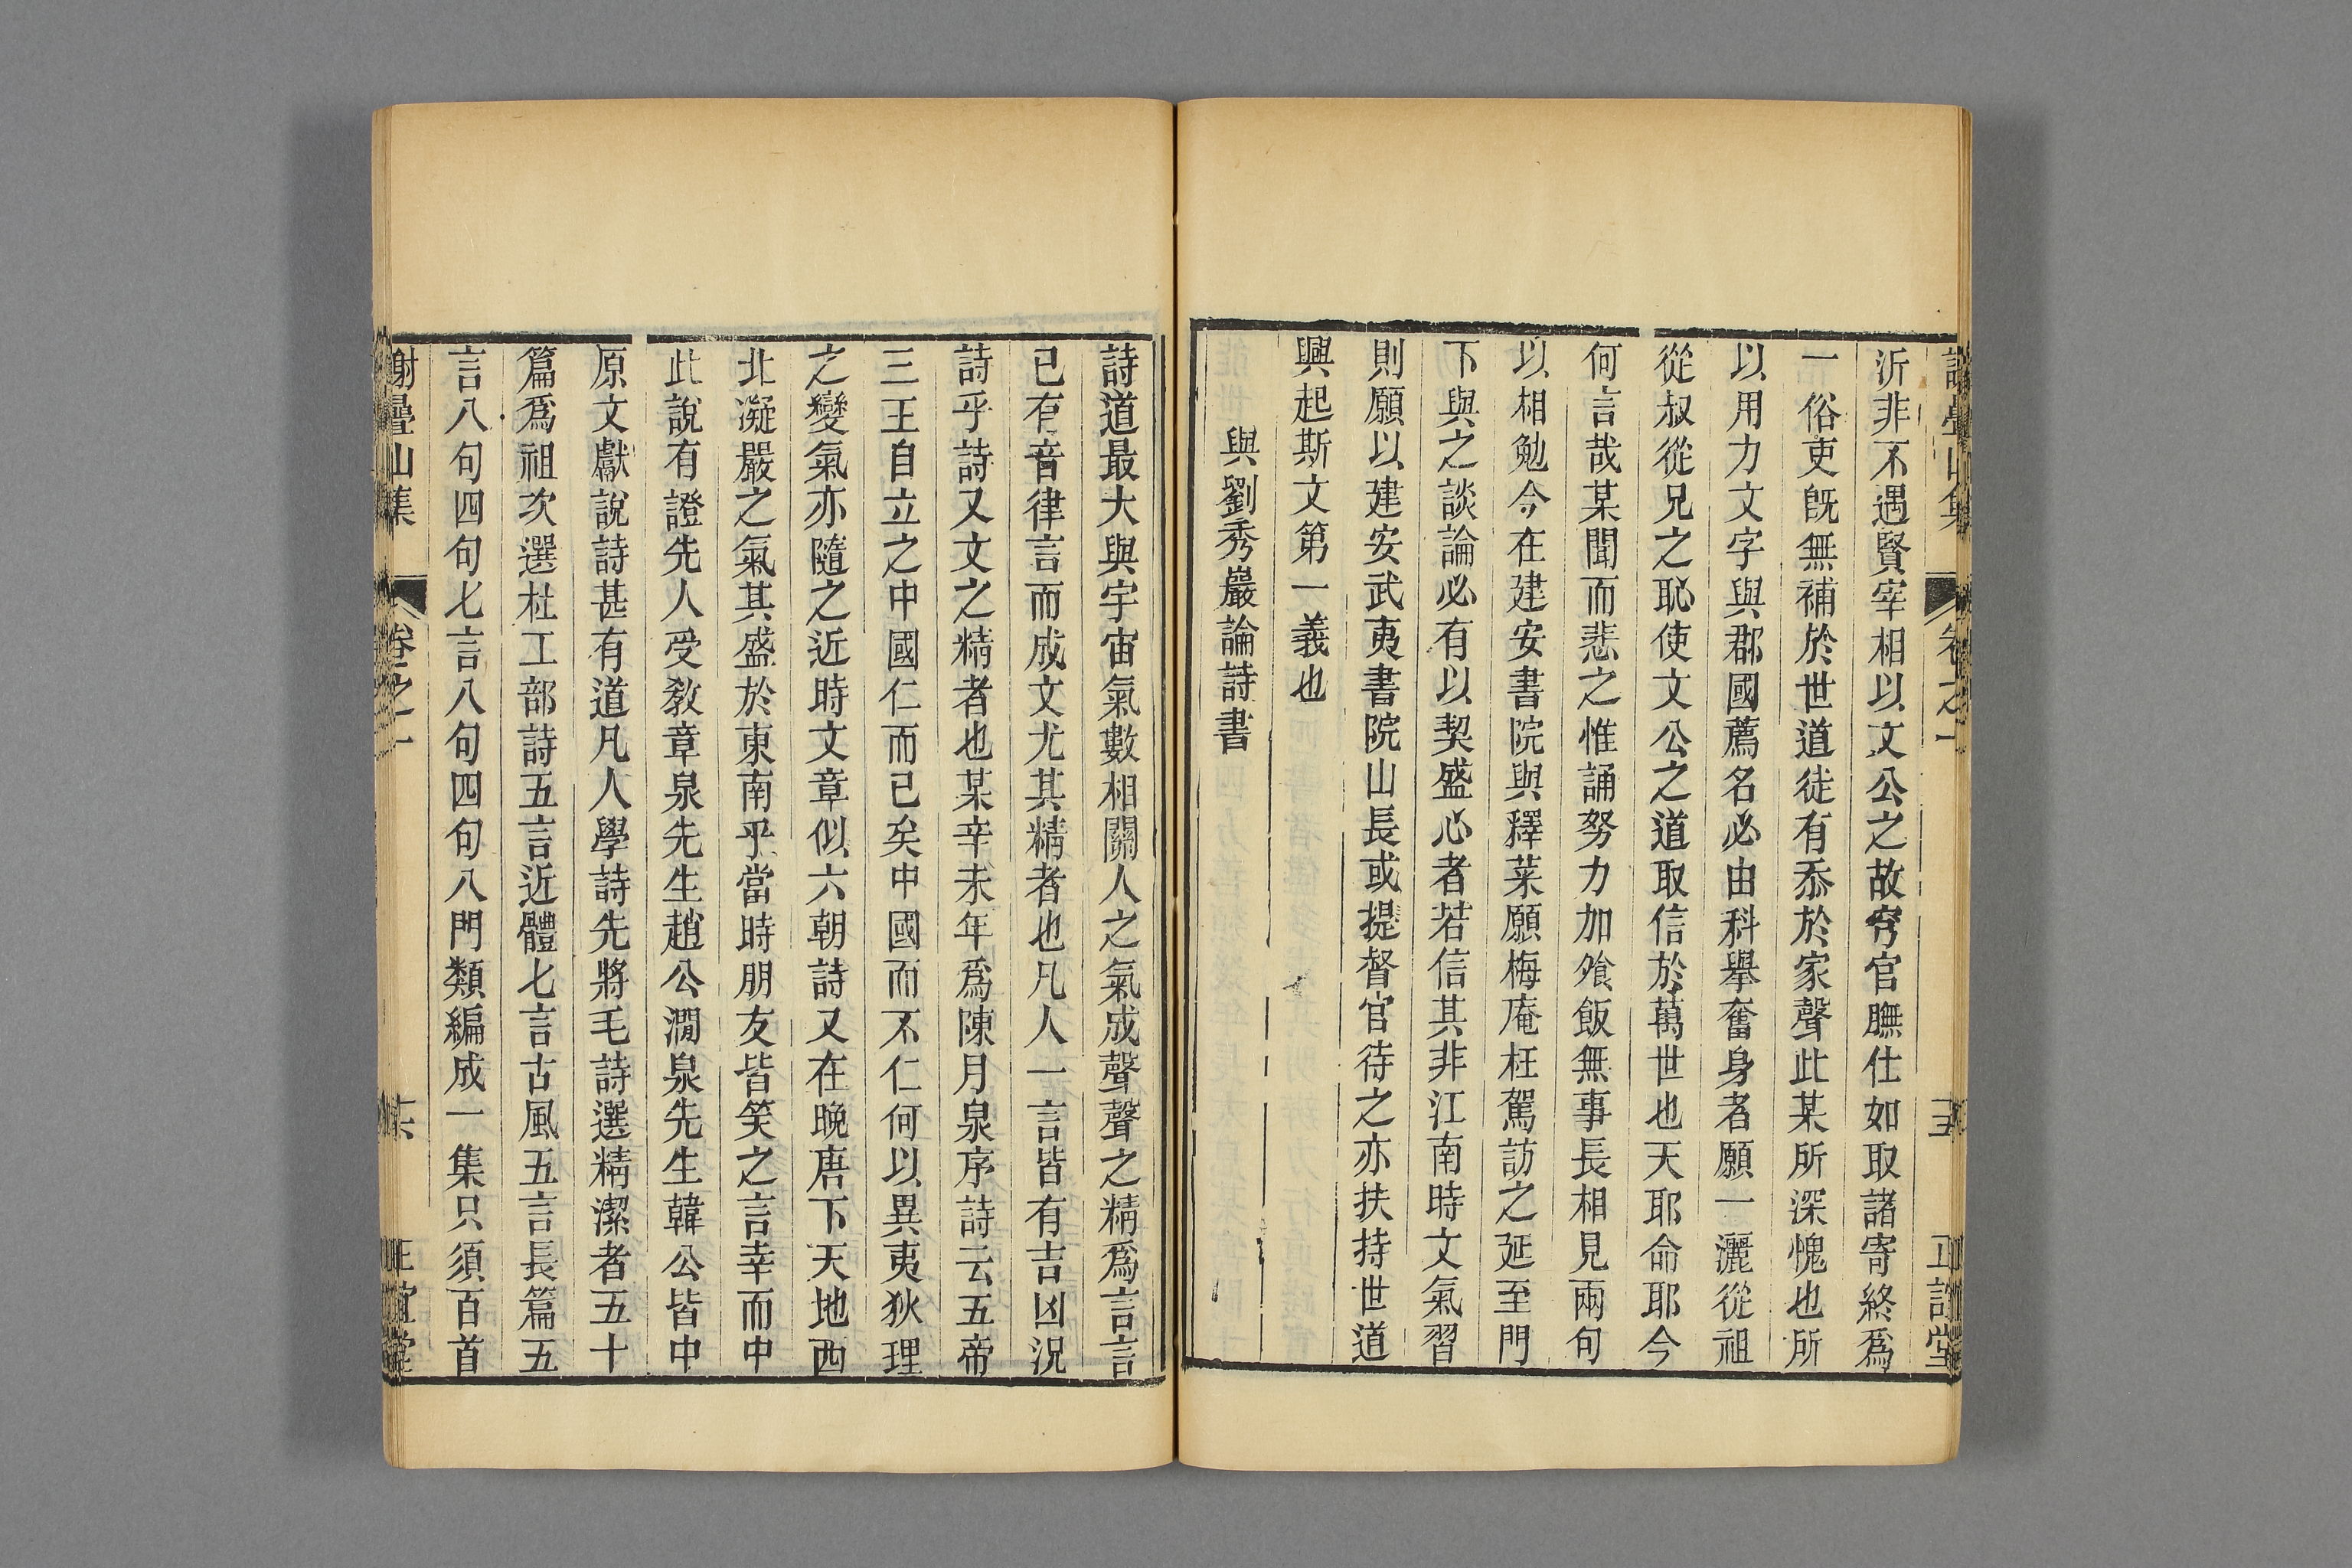 謝疊山集 卷之一 十五 正誼堂
沂非不遇賢宰相以文公之故窮官膴仕如取諸寄終爲
一俗吏旣無補於世道徒有忝於家聲此某所深愧也所
以用力文字與郡國薦名必由科舉奮身者願一灑從祖
從叔從兄之恥使文公之道取信於萬世也天耶命耶今
何言哉某聞而悲之惟誦努力加飧飯無事長相見兩句
以相勉今在建安書院與釋菜願梅庵枉駕訪之延至門
下與之談論必有以契盛心者若信其非江南時文氣習
則願以建安武夷書院山長或提督官待之亦扶持世道
興起斯文第一義也
與劉秀巖論詩書
詩道最大與宇宙氣數相關人之氣成聲聲之精爲言言
已有音律言而成文尤其精者也凡人一言皆有吉凶況
詩乎詩又文之精者也某辛未年爲陳月泉序詩云五帝
三王自立之中國仁而已矣中國而不仁何以異夷狄理
之變氣亦隨之近時文章似六朝詩又在晚唐下天地西
北凝嚴之氣其盛於東南乎當時朋友皆笑之言幸而中
此說有證先人受敎章泉先生趙公澗泉先生韓公皆中
原文獻說詩甚有道凡人學詩先將毛詩選精潔者五十
篇爲祖次選杜工部詩五言近體七言古風五言長篇五
言八句四句七言八句四句八門類編成一集只須百首
謝疊山集 卷之一 十六 正誼堂